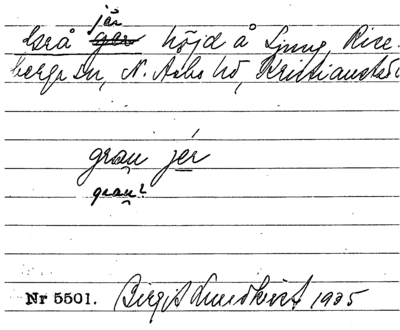 jär
Grå ger höjd å Ljung, Rise-
berga sn, N. Åsbo hd, Kristianstads
grau̯ jér
grau̯?
Nr 5501. Birgit Lundkvist 1935